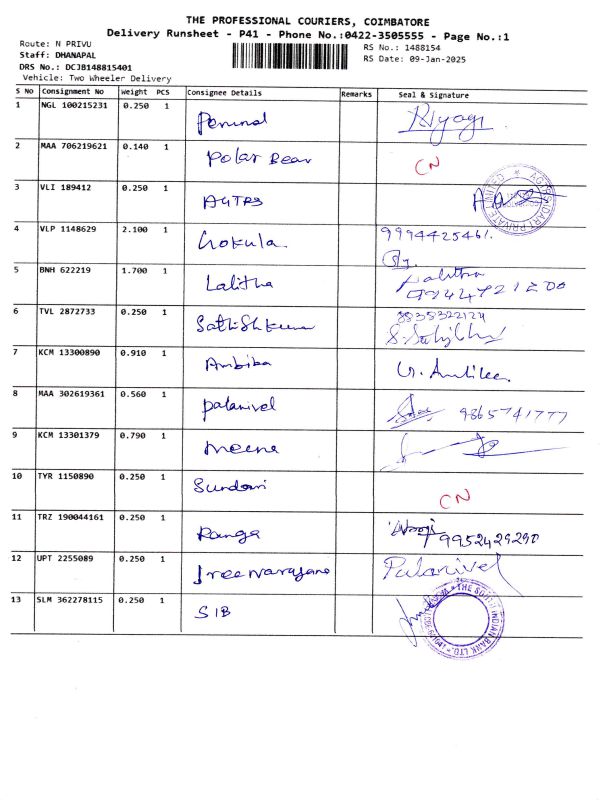 THE PROFESSIONAL COURIERS, COIMBATORE
Delivery Runsheet - P41 - Phone No.:0422-3505555 - Page No.:1
Route: N PRIVU
RS No.: 1488154
Staff: DHANAPAL
RS Date: 09-Jan-2025
DRS No.: DCJB148815401
Vehicle: Two Wheeler Delivery
S No Consignment No Weight PCS Consignee Details Remarks Seal & Signature
1 NGL 100215231 0.250 1 Perumal
2 MAA 706219621 0.140 1 Polar Bear CN
3 VLI 189412 0.250 1
4 VLP 1148629 2.100 1 Gokula 9994425461.
5 BNH 622219 1.700 1 Lalitha Lalitha
6 TVL 2872733 0.250 1 Sathish kumar 8838322124
7 KCM 13300890 0.910 1 Ambika
8 MAA 302619361 0.560 1 palanivel 9865741777
9 KCM 13301379 0.790 1 meena
10 TYR 1150890 0.250 1 Sundari CN
11 TRZ 190044161 0.250 1 Ranga 9952429290
12 UPT 2255089 0.250 1 Sreenarayana Palanivel
13 SLM 362278115 0.250 1 SIB
THE SOUTH INDIAN BANK LTD.